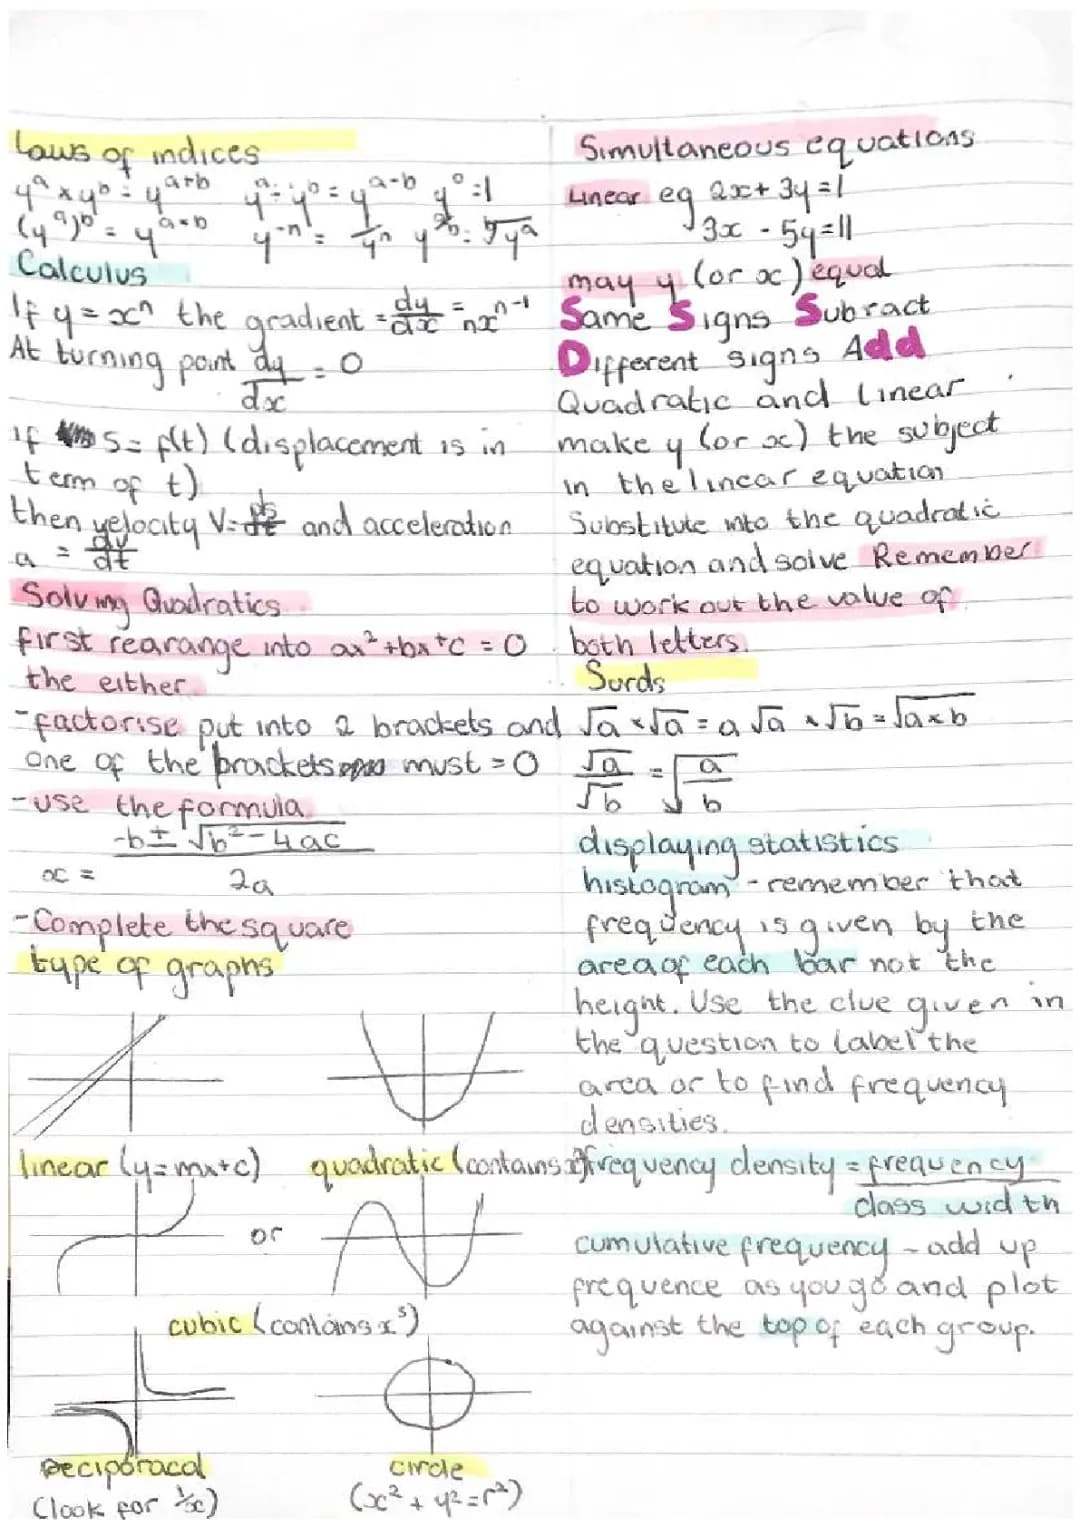 Laws of indices
y^a × y^b = y^(a+b)  y^a ÷ y^b = y^(a-b)  y^0 = 1
(y^a)^b = y^(a×b)  y^-n = 1/y^n  y^(a/b) = b√y^a
Calculus
If y = x^n the gradient = dy/dx = nx^(n-1)
At turning point dy/dx = 0
if s = f(t) (displacement is in
term of t)
then velocity V = ds/dt and acceleration
a = dv/dt
Solving Quadratics
first rearange into ax² + bx + c = 0
the either
- factorise put into 2 brackets and
one of the brackets must = 0
- use the formula
x = -b ± √b² - 4ac / 2a
- Complete the square
type of graphs
linear (y = mx + c)
quadratic (contains x²)
or
cubic (contains x³)
reciporacal
(look for 1/x)
circle
(x² + y² = r²)
Simultaneous equations
Linear eg 2x + 3y = 1
3x - 5y = 11
may y (or x) equal
Same Signs Subract
Different signs Add
Quadratic and linear
make y (or x) the subject
in the linear equation
Substitute into the quadratic
equation and solve Remember
to work out the value of
both letters.
Surds
√a × √a = a √a × √b = √a×b
√a/√b = √a/b
displaying statistics
histogram - remember that
frequency is given by the
area of each bar not the
height. Use the clue given in
the question to label the
area or to find frequency
densities.
frequency density = frequency / class width
cumulative frequency - add up
frequence as you go and plot
against the top of each group.